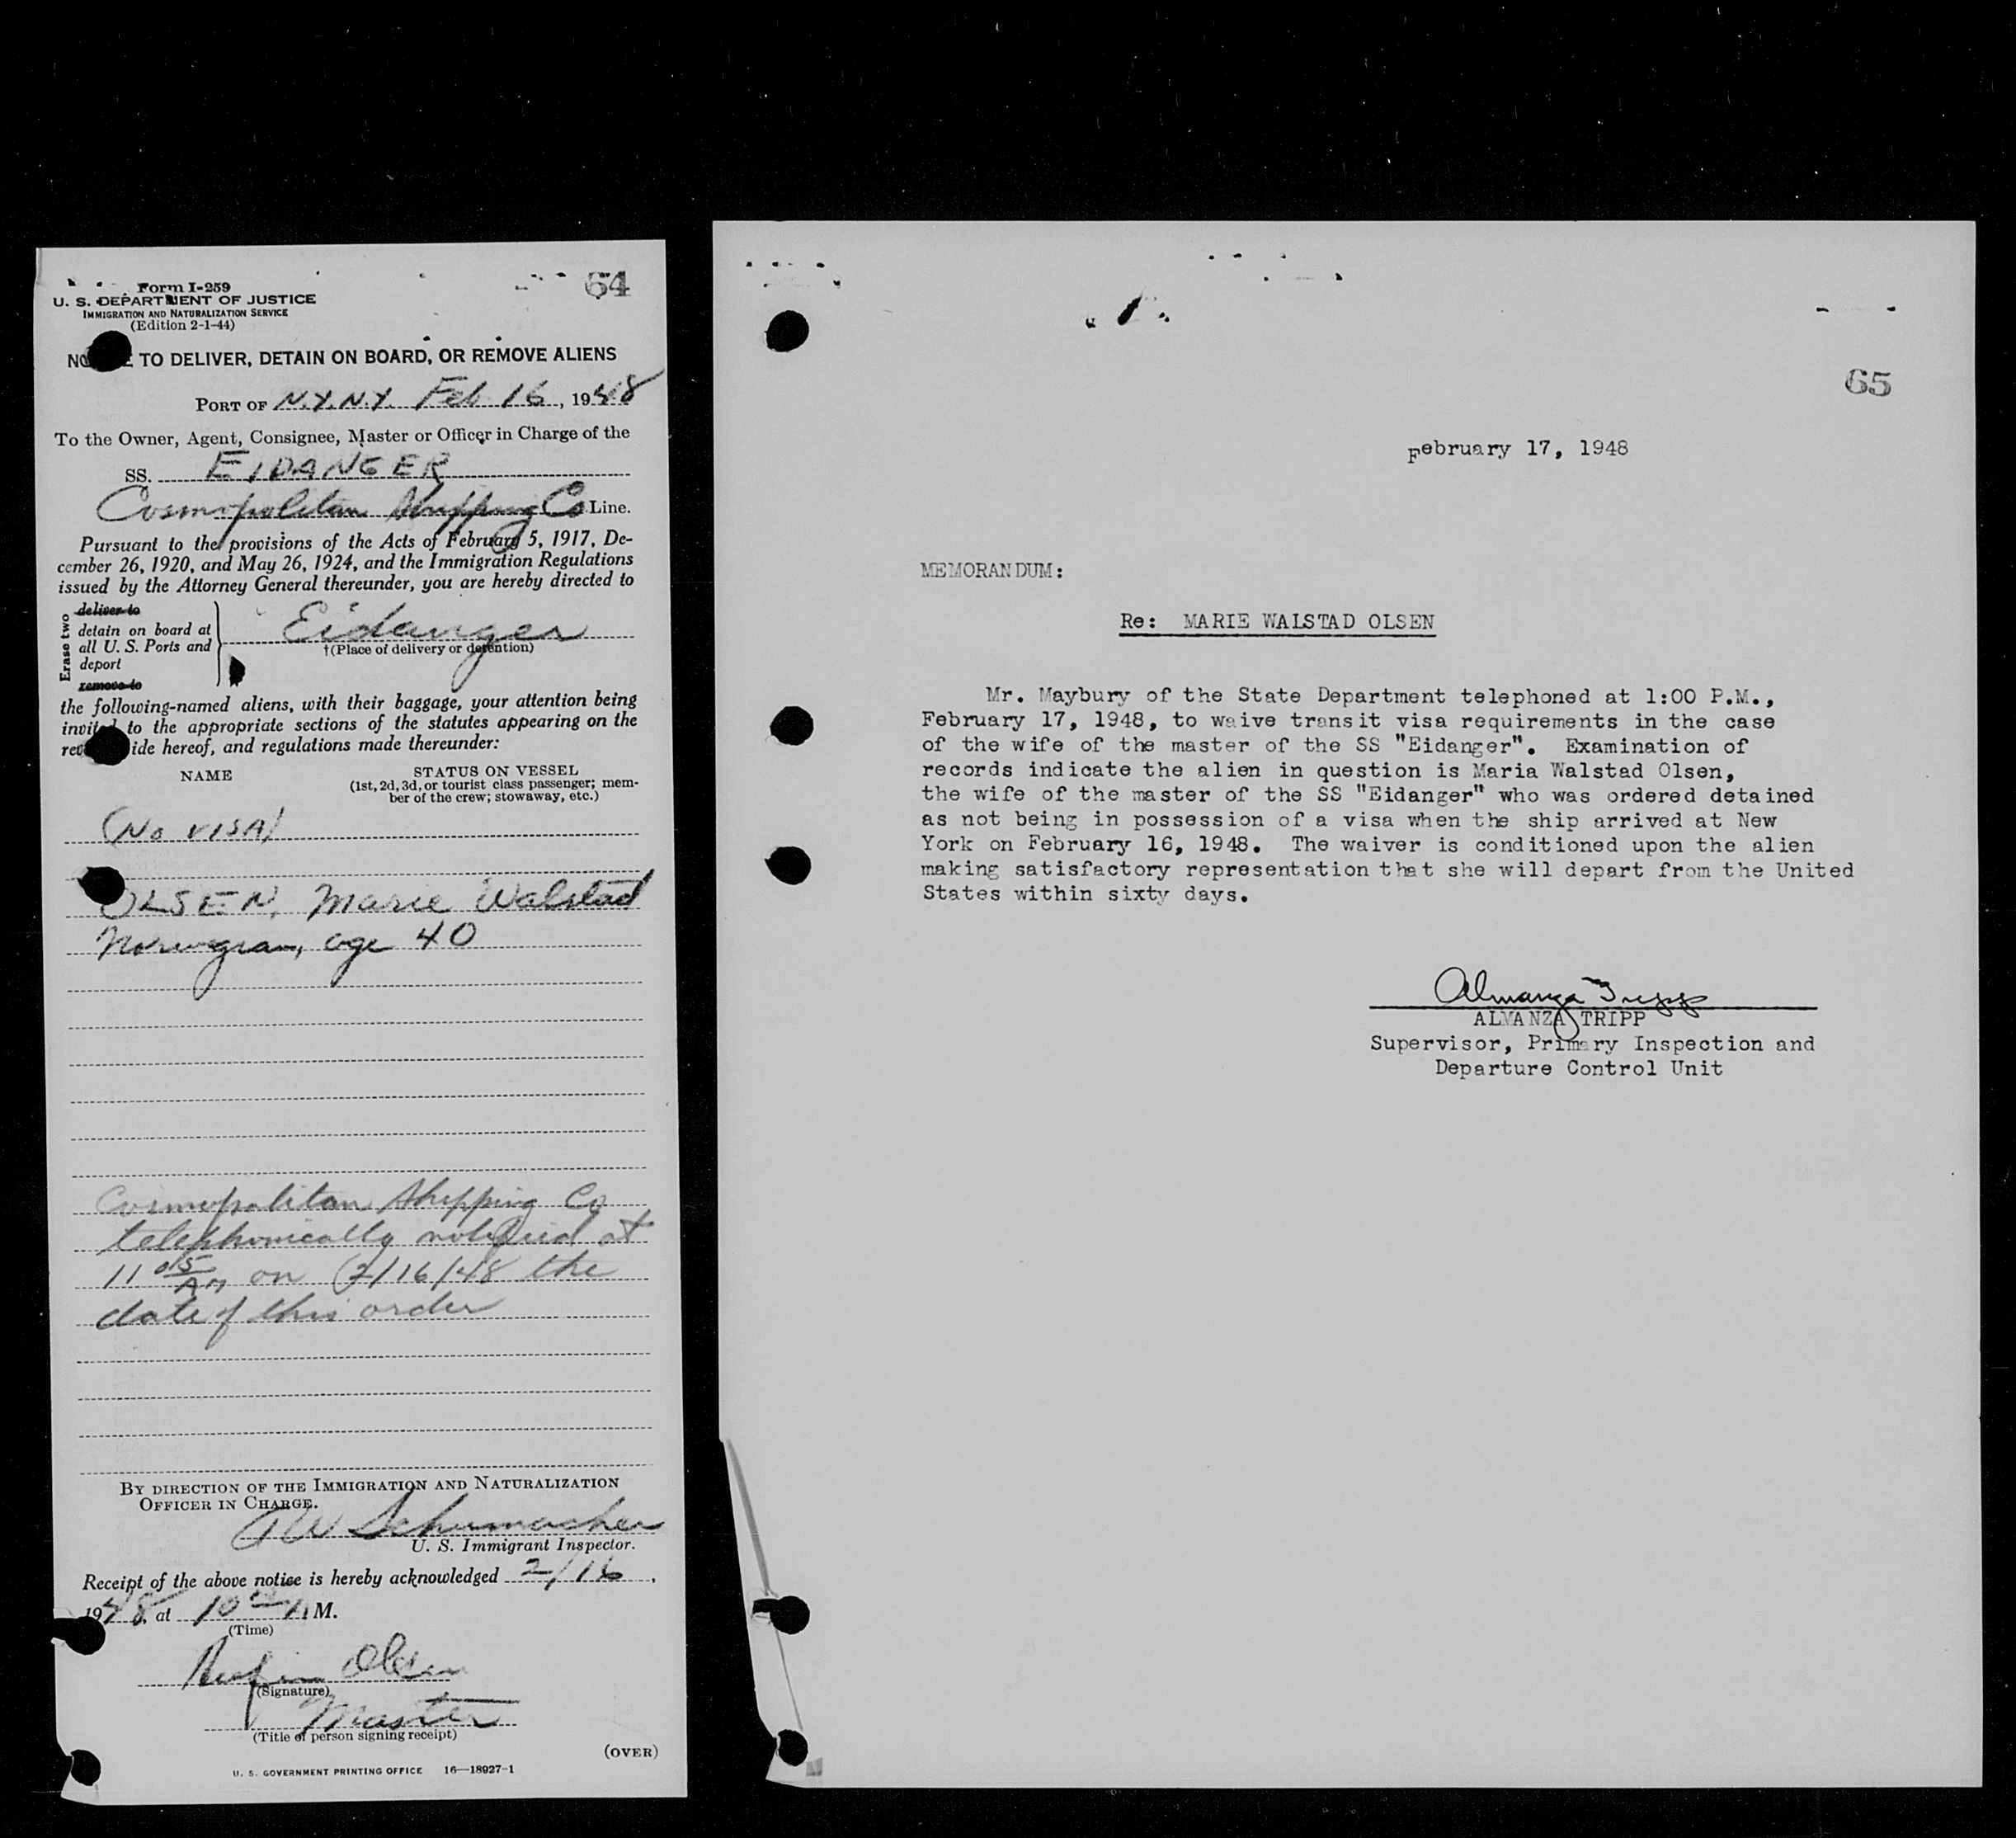 Form I-259
64
U. S. DEPARTMENT OF JUSTICE
IMMIGRATION AND NATURALIZATION SERVICE
(Edition 2-1-44)
NO E TO DELIVER, DETAIN ON BOARD, OR REMOVE ALIENS
PORT OF N.Y.N.Y. Feb 16, 1948
To the Owner, Agent, Consignee, Master or Officer in Charge of the
SS. EIDANGER
Cosmopolitan Shipping Co Line.
Pursuant to the provisions of the Acts of February 5, 1917, De-
cember 26, 1920, and May 26, 1924, and the Immigration Regulations
issued by the Attorney General thereunder, you are hereby directed to
Erase two
deliver to
detain on board at
all U. S. Ports and
deport
remove to
Eidanger
†(Place of delivery or detention)
the following-named aliens, with their baggage, your attention being
invited to the appropriate sections of the statutes appearing on the
rev ide hereof, and regulations made thereunder:
NAME
STATUS ON VESSEL
(1st, 2d, 3d, or tourist class passenger; mem-
ber of the crew; stowaway, etc.)
(No VISA)
OLSEN, Marie Walstad
Norwegian, age 40
Cosmopolitan Shipping Co
telephonically notified at
11 05 AM on 2/16/48 the
date of this order
BY DIRECTION OF THE IMMIGRATION AND NATURALIZATION
OFFICER IN CHARGE.
Schumacher
U. S. Immigrant Inspector.
Receipt of the above notice is hereby acknowledged 2/16,
1948, at 10 A M.
(Time)
Olsen
(Signature)
Master
(Title of person signing receipt)
(OVER)
U. S. GOVERNMENT PRINTING OFFICE 16—18927-1
65
February 17, 1948
MEMORANDUM:
Re: MARIE WALSTAD OLSEN
Mr. Maybury of the State Department telephoned at 1:00 P.M.,
February 17, 1948, to waive transit visa requirements in the case
of the wife of the master of the SS "Eidanger". Examination of
records indicate the alien in question is Maria Walstad Olsen,
the wife of the master of the SS "Eidanger" who was ordered detained
as not being in possession of a visa when the ship arrived at New
York on February 16, 1948. The waiver is conditioned upon the alien
making satisfactory representation that she will depart from the United
States within sixty days.
Almanza Tripp
ALMANZA TRIPP
Supervisor, Primary Inspection and
Departure Control Unit